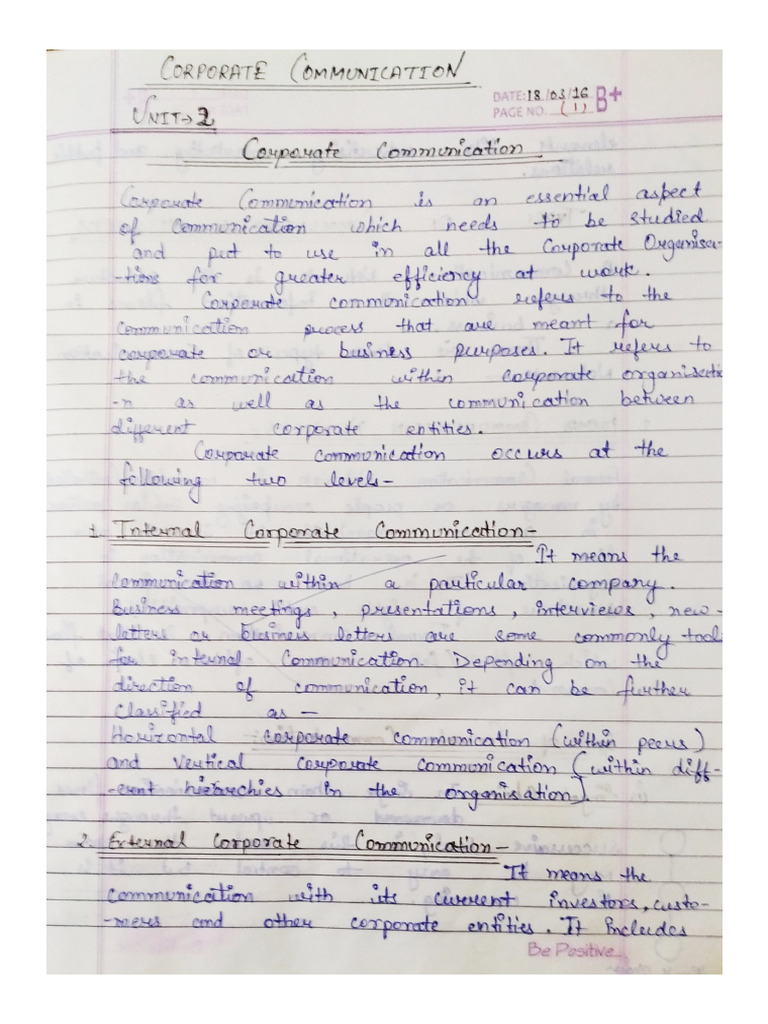 CORPORATE COMMUNICATION
DATE: 18/03/16 B+
PAGE NO. (1)
UNIT→2
Corporate Communication.
Corporate Communication is an essential aspect
of communication which needs to be studied
and put to use in all the Corporate Organisa-
-tions for greater efficiency at work.
Corporate communication refers to the
communication process that are meant for
corporate or business purposes. It refers to
the communication within corporate organisatio
-n as well as the communication between
different corporate entities.
Corporate communication occurs at the
following two levels-
1. Internal Corporate Communication-
It means the
communication within a particular company.
Business meetings, presentations, interviews, new-
-letters or business letters are some commonly tool
for internal communication. Depending on the
direction of communication, it can be further
classified as —
Horizontal corporate communication (within peers)
and vertical corporate communication (within diff-
-erent hierarchies in the organisation).
2. External Corporate Communication-
It means the
communication with its current investors, custo-
-mers and other corporate entities. It includes
Be Positive...